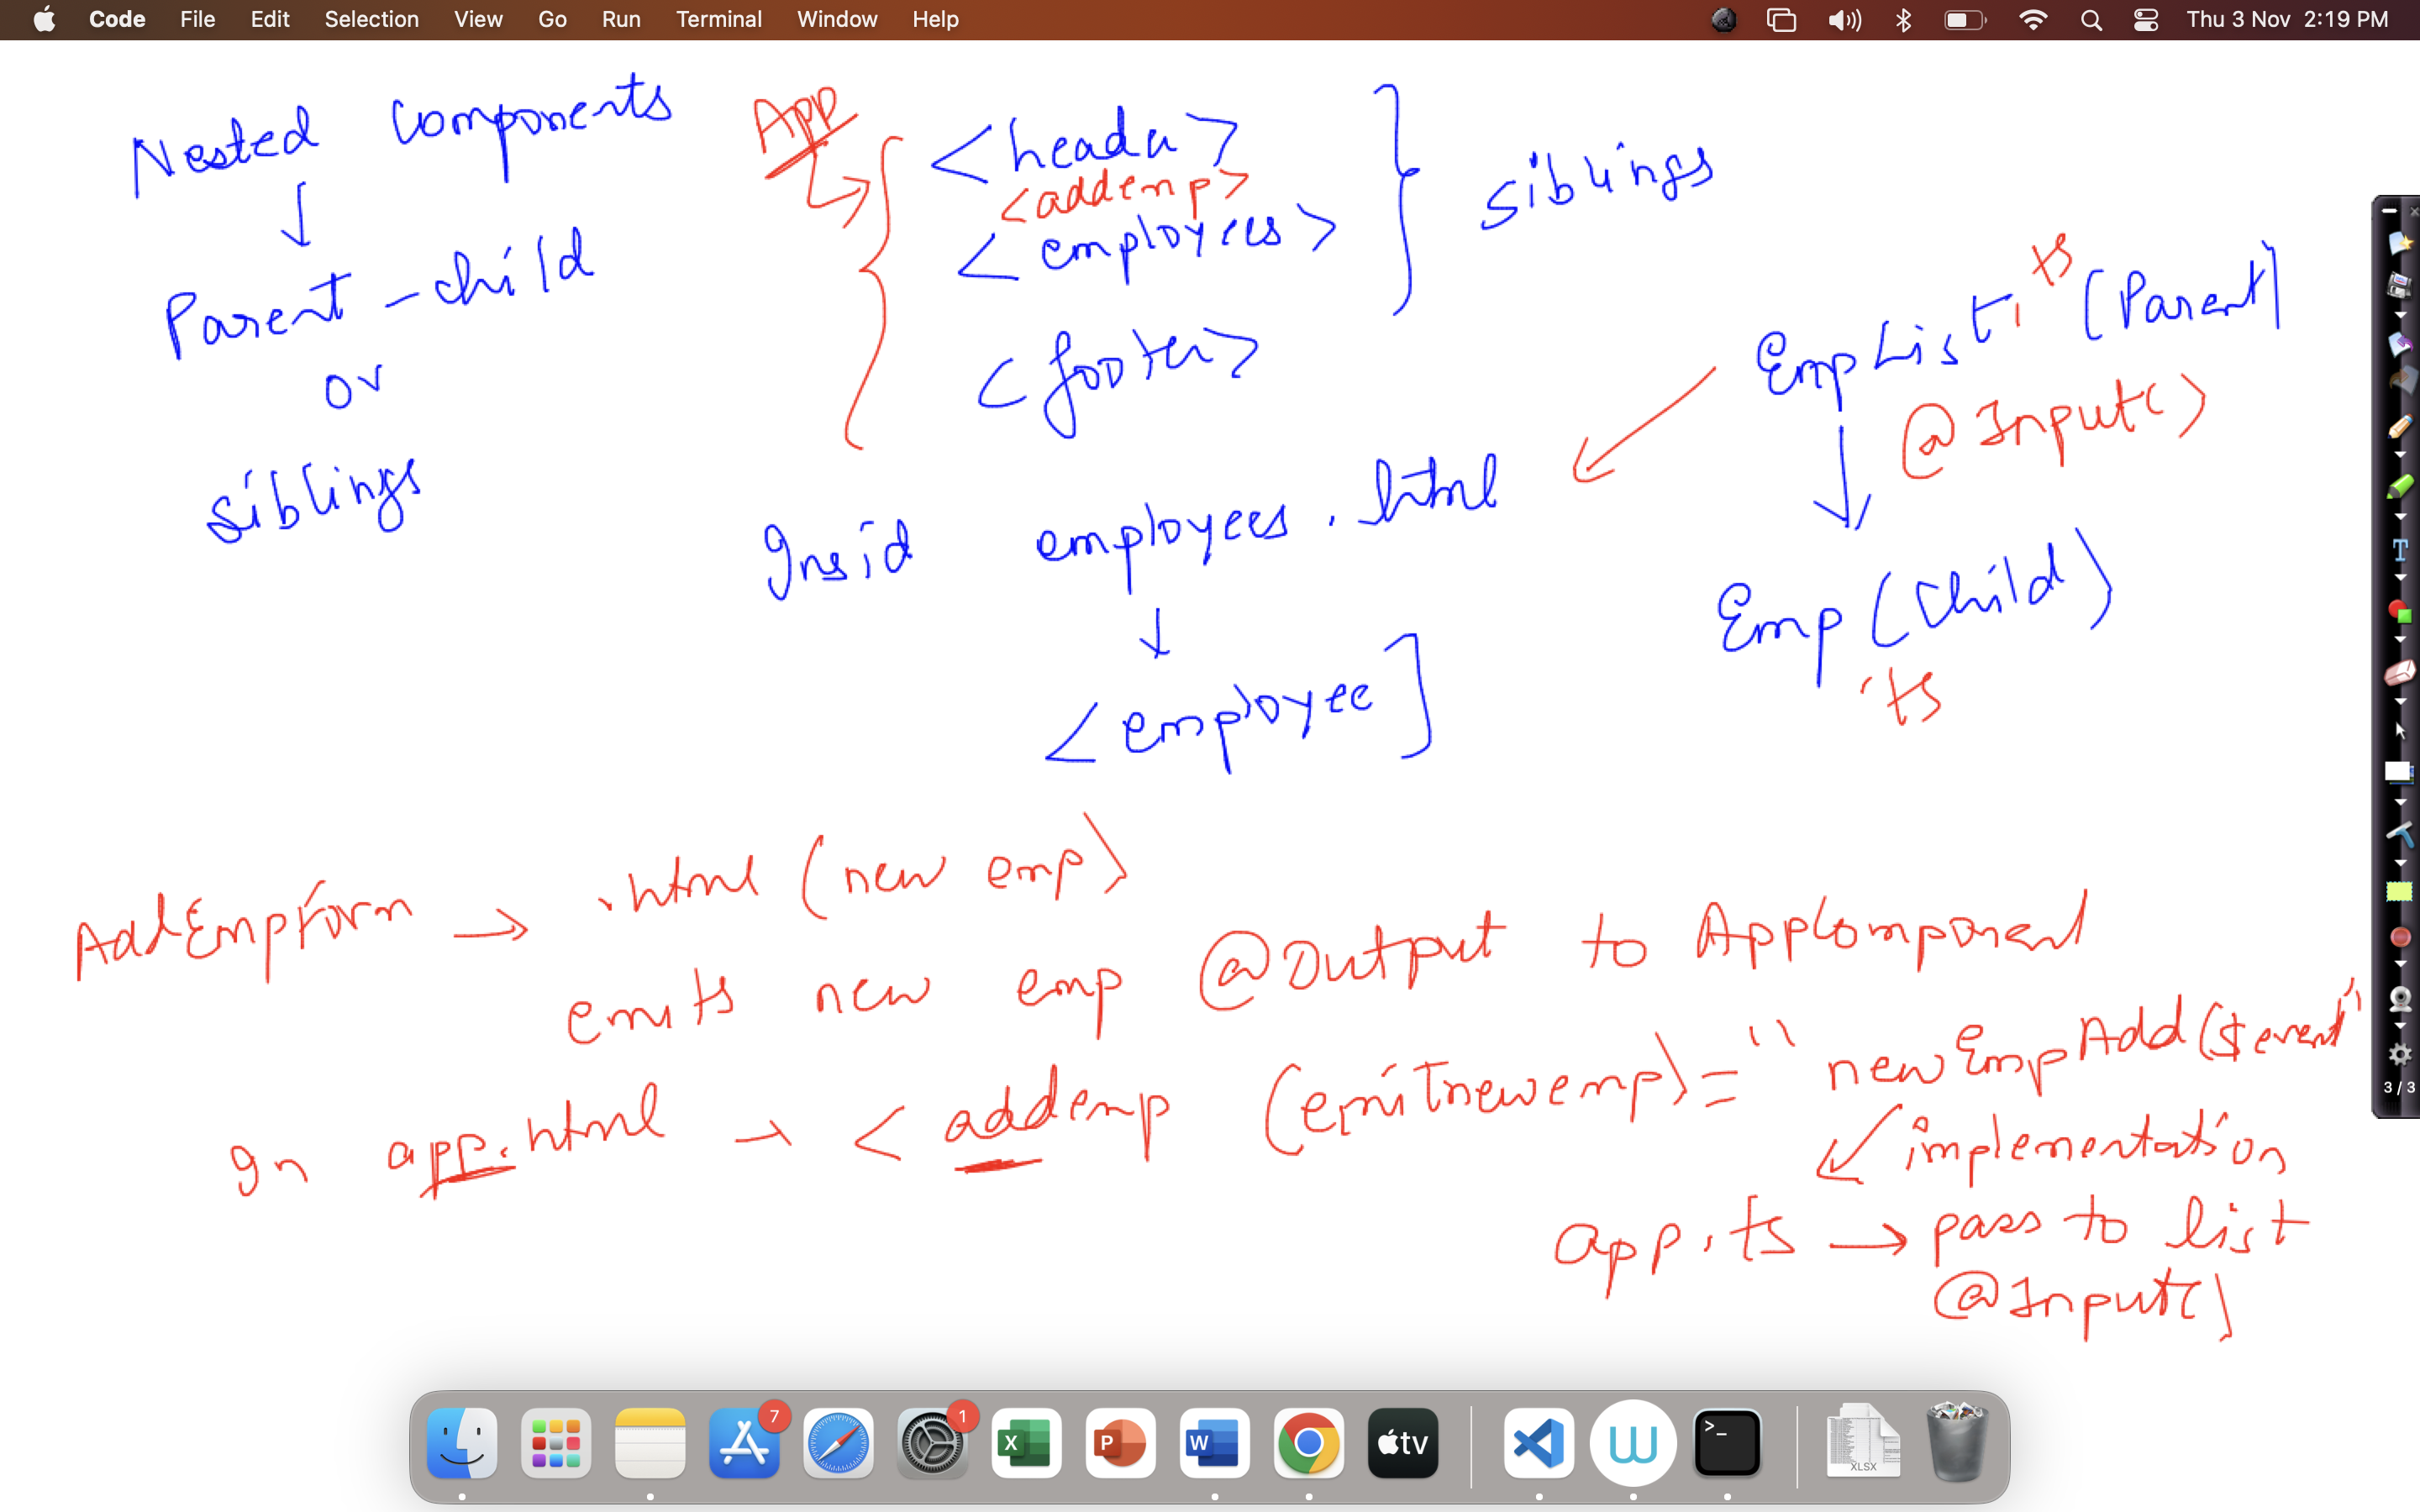 Code File Edit Selection View Go Run Terminal Window Help Thu 3 Nov 2:19 PM
Nested Components
↓
Parent - child
or
siblings
App
<header>
<addemp>
<employees>
<footer>
siblings
Insid employees.html
↓
<employee]
EmpList.ts (Parent)
@Input()
Emp (Child)
.ts
AddEmpForm → .html (new emp)
emits new emp @Output to AppComponent
In app.html → <addemp (emitnewemp)="newEmpAdd($event"
implementation
app.ts → pass to list
@Input()
3 / 3
7
1
X
P
W
tv
W
>_
XLSX